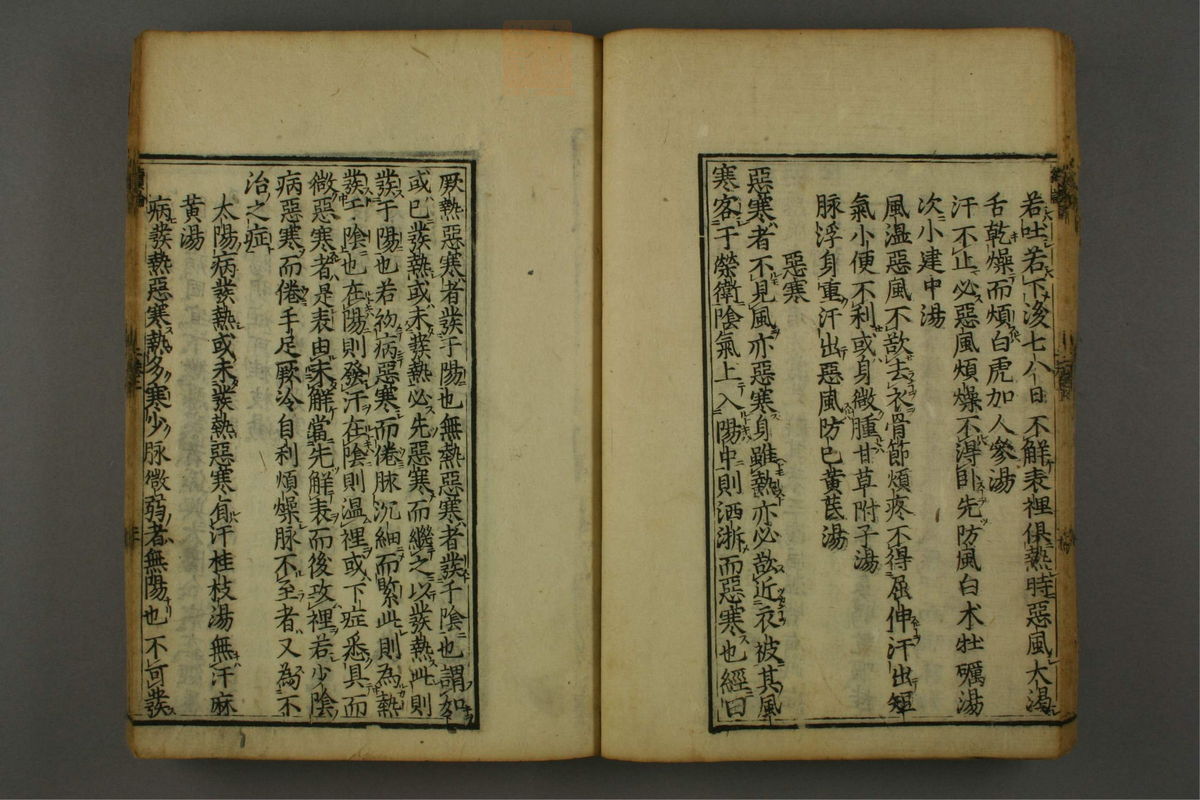 若吐若下後七八日不解表裡俱熱時惡風大渴
舌乾燥而煩白虎加人參湯
汗不止必惡風煩燥不得臥先防風白朮牡礪湯
次小建中湯
風溫惡風不欲去衣骨節煩疼不得屈伸汗出短
氣小便不利或身微腫甘草附子湯
脉浮身重汗出惡風防已黃茋湯
惡寒
惡寒者不見風亦惡寒身雖熱亦必欲近衣被其風
寒客于榮衛陰氣上入陽中則洒淅而惡寒也經曰
厥熱惡寒者發于陽也無熱惡寒者發于陰也謂如
或已發熱或未發熱必先惡寒而繼之以發熱此則
發于陽也若初病惡寒而倦脉沉細而緊此則為熱
發于陰也在陽則發汗在陰則溫裡或下症悉具而
微惡寒者是表由未解當先解表而後攻裡若少陰
病惡寒而倦手足厥冷自利煩燥脉不至者又為不
治之症
太陽病發熱或未發熱惡寒有汗桂枝湯無汗麻
黃湯
病發熱惡寒熱多寒少脉微弱者無陽也不可發